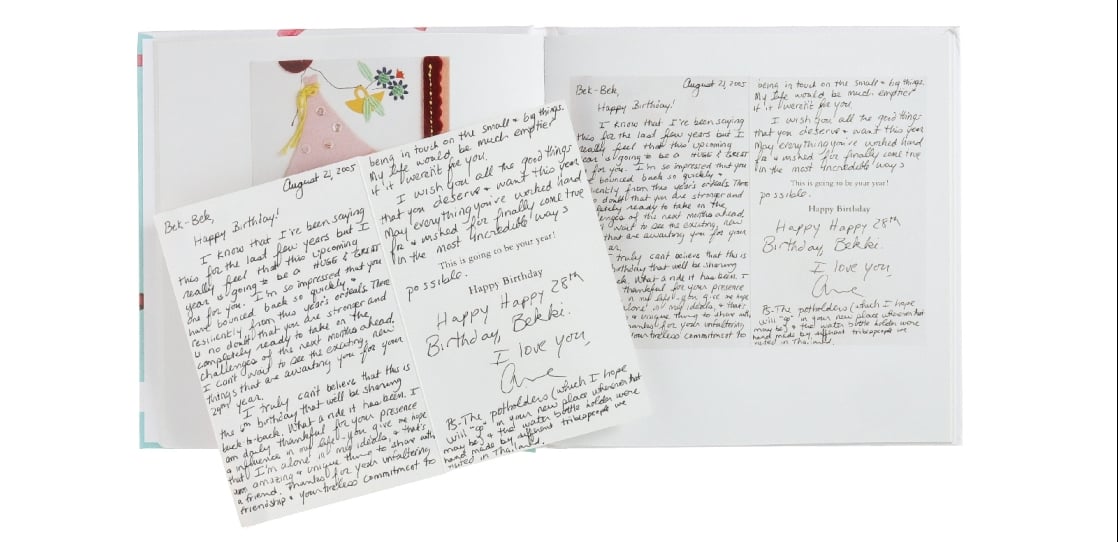 August 21, 2005
Bek-Bek,
Happy Birthday!
I know that I've been saying
this for the last few years but I
really feel that this upcoming
year is going to be a HUGE & GREAT
one for you. I'm so impressed that you
have bounced back so quickly &
resiliently from this year's ordeals. There
is no doubt that you are stronger and
completely ready to take on the
challenges of the next months ahead.
I can't wait to see the exciting new
things that are awaiting you for your
29th year.
I truly can't believe that this is
the 6th birthday that we'll be sharing
back-to-back. What a ride it has been. I
am daily thankful for your presence
& influence in my life - you give me hope
that I'm alone in my ideals, & that's
an amazing & unique thing to share with
a friend. Thanks for your unfaltering
friendship & your tireless commitment to
being in touch on the small & big things.
My life would be much emptier
if it weren't for you.
I wish you all the good things
that you deserve & want this year
May everything you've worked hard
for & wished for finally come true
in the most incredible ways
This is going to be your year!
possible.
Happy Birthday
Happy Happy 28th
Birthday, Bekki.
I love you,
PS- The potholders (which I hope
will "go" in your new place wherever that
may be) & the water bottle holder were
hand made by different tribespeople we
visited in Thailand.
August 21, 2005
Bek-Bek,
Happy Birthday!
I know that I've been saying
this for the last few years but I
really feel that this upcoming
year is going to be a HUGE & GREAT
for you. I'm so impressed that you
bounced back so quickly &
resiliently from this year's ordeals. There
doubt that you are stronger and
completely ready to take on the
challenges of the next months ahead.
wait to see the exciting new
that are awaiting you for your
year.
truly can't believe that this is
birthday that we'll be sharing
back. What a ride it has been. I
thankful for your presence
in my life - you give me hope
alone in my ideals, & that's
& unique thing to share with
Thanks for your unfaltering
your tireless commitment to
being in touch on the small & big things.
My life would be much emptier
if it weren't for you.
I wish you all the good things
that you deserve & want this year
May everything you've worked hard
for & wished for finally come true
in the most incredible ways
This is going to be your year!
possible.
Happy Birthday
Happy Happy 28th
Birthday, Bekki.
I love you,
PS- The potholders (which I hope
will "go" in your new place wherever that
may be) & the water bottle holder were
hand made by different tribespeople we
visited in Thailand.